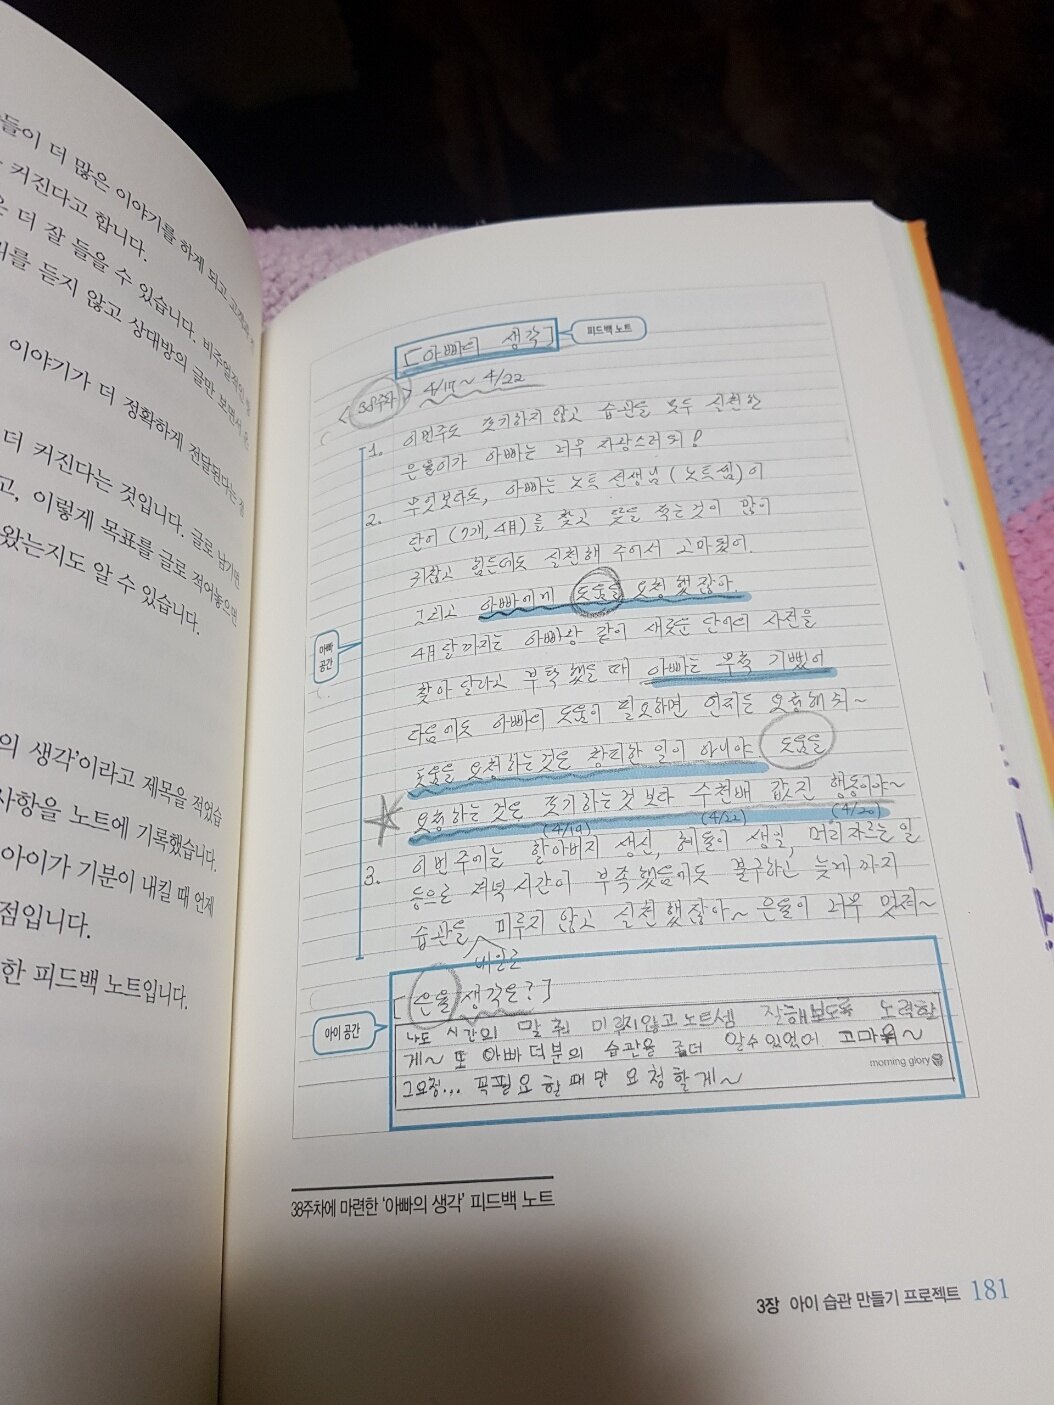 들이 더 많은 이야기를 하게 되고
커진다고 합니다.
더 잘 들을 수 있습니다. 비주얼적인
를 듣지 않고 상대방의 글만 보면서
이야기가 더 정확하게 전달된다는
더 커진다는 것입니다. 글로 남기면
고, 이렇게 목표를 글로 적어놓으면
왔는지도 알 수 있습니다.
의 생각'이라고 제목을 적었습
사항을 노트에 기록했습니다.
아이가 기분이 내킬 때 언제
점입니다.
한 피드백 노트입니다.
[아빠의 생각]
피드백 노트
<38주차> 4/17~4/22
1. 이번주도 포기하지 않고 습관을 모두 실천한
은율이가 아빠는 너무 자랑스러워!
2. 무엇보다도, 아빠는 노트 선생님(노트쌤)이
단어(7개, 4月)를 찾고 뜻을 적는 것이 많이
귀찮고 힘든데도 실천해 주어서 고마웠어.
그리고 아빠에게 도움을 요청했잖아.
4月달까지는 아빠랑 같이 새로운 단어의 사전을
찾아 달라고 부탁했을 때 아빠는 무척 기뻤어
다음에도 아빠의 도움이 필요하면 언제든 요청해줘~
도움을 요청하는 것은 창피한 일이 아니야 도움을
요청하는 것은 포기하는 것보다 수천배 값진 행동이야~
(4/19) (4/22) (4/20)
3. 이번 주에는 할아버지 생신, 생일, 머리 자르는 일
등으로 저녁시간이 부족했음에도 불구하고 늦게까지
습관을 미루지 않고 실천했잖아~ 은율이 너무 멋져~
내일로
아빠
공간
[은율 생각은?]
아이 공간
나도 시간의 말 미루지않고 노트쌤 잘해보도록 노력할
게~ 또 아빠 덕분의 습관을 좀더 알수있었어 고마워~
그요청... 꼭필요할때만 요청할게~
morning glory
38주차에 마련한 '아빠의 생각' 피드백 노트
3장 아이 습관 만들기 프로젝트 181